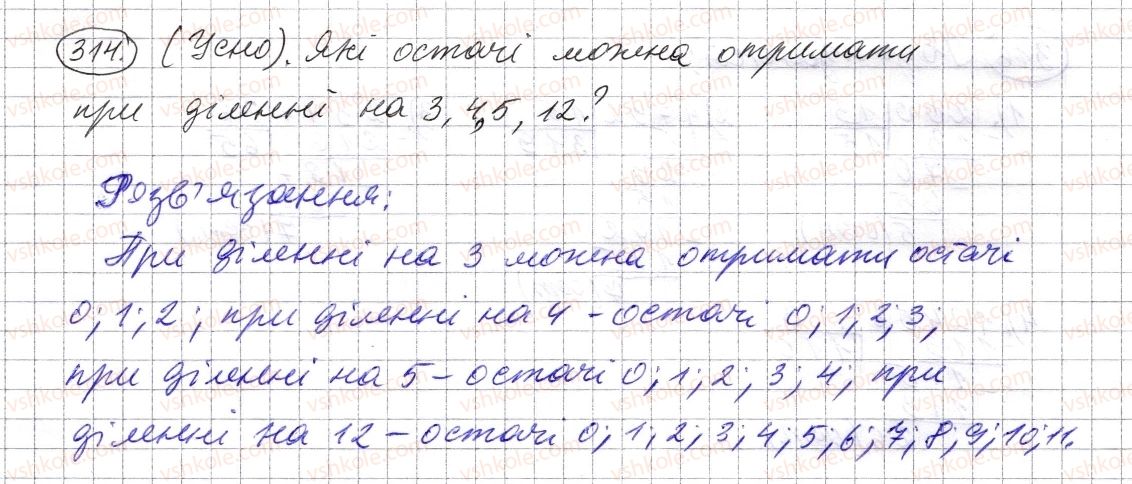 314. (Усно). Які остачі можна отримати
при діленні на 3, 4, 5, 12?
Розв'язання:
При діленні на 3 можна отримати остачі
0; 1; 2; при діленні на 4 – остачі 0; 1; 2; 3;
при діленні на 5 – остачі 0; 1; 2; 3; 4; при
діленні на 12 – остачі 0; 1; 2; 3; 4; 5; 6; 7; 8; 9; 10; 11.